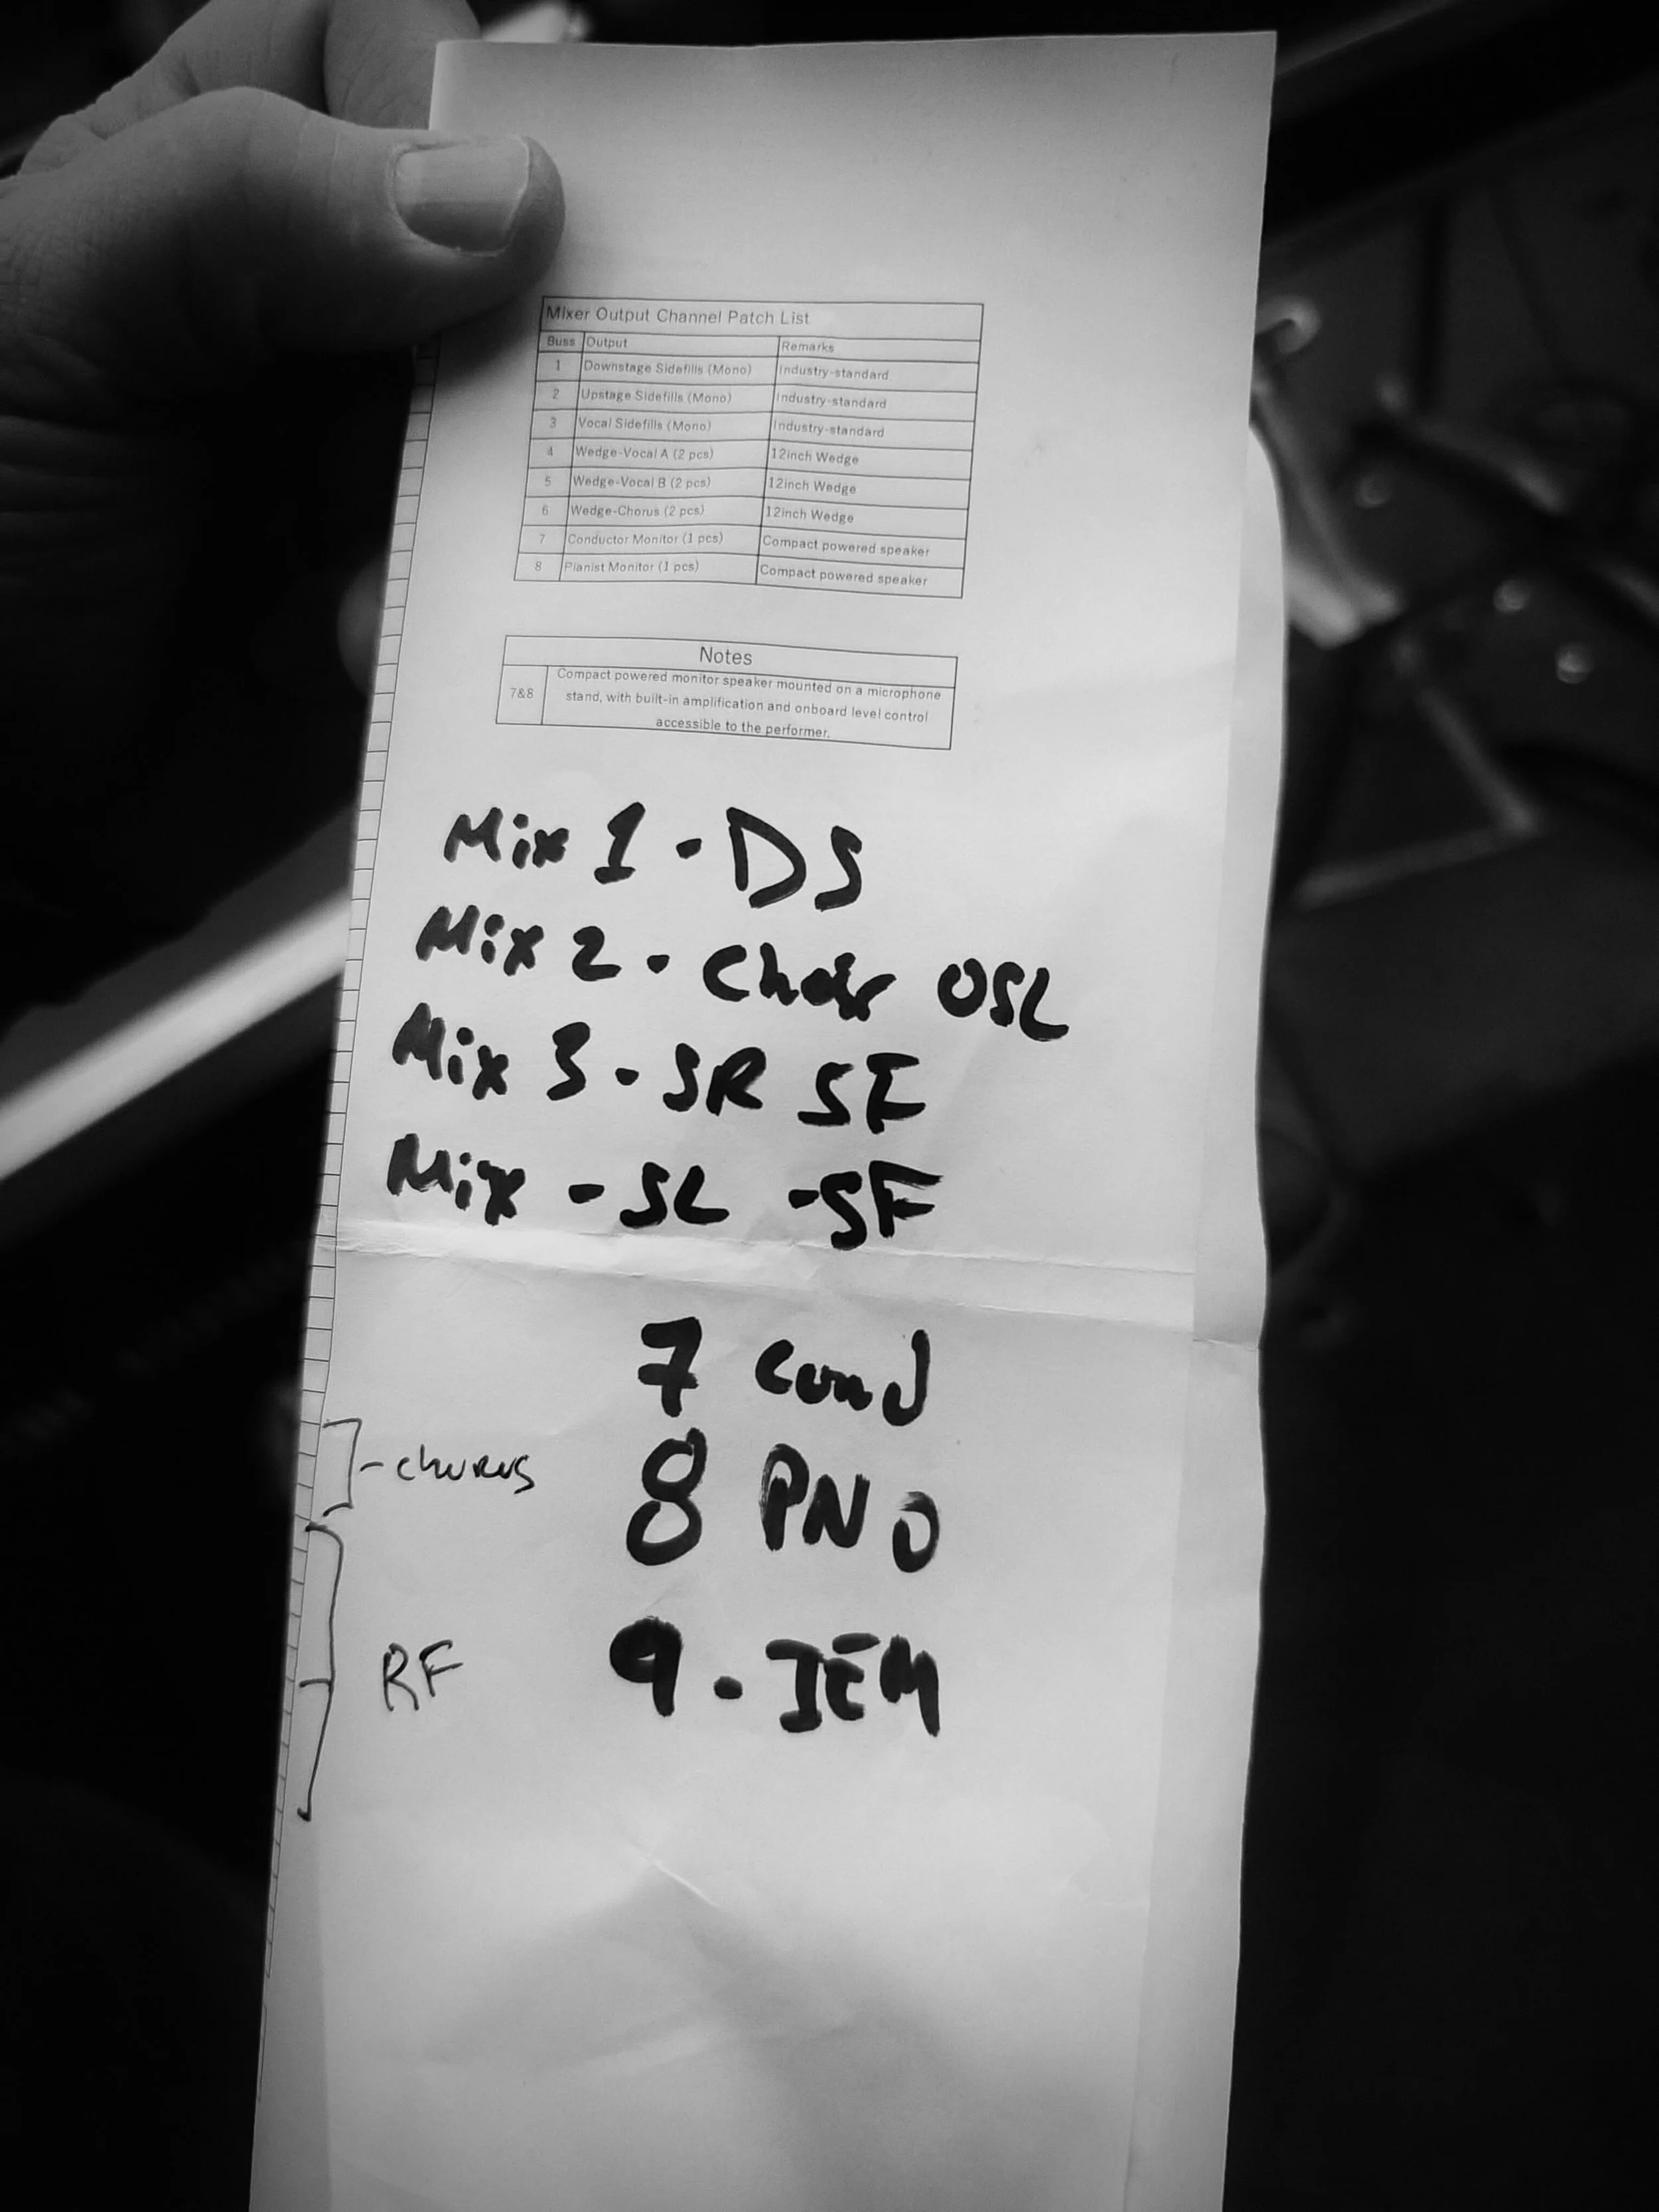 Mixer Output Channel Patch List
Buss Output Remarks
1 Downstage Sidefills (Mono) Industry-standard
2 Upstage Sidefills (Mono) Industry-standard
3 Vocal Sidefills (Mono) Industry-standard
4 Wedge-Vocal A (2 pcs) 12inch Wedge
5 Wedge-Vocal B (2 pcs) 12inch Wedge
6 Wedge-Chorus (2 pcs) 12inch Wedge
7 Conductor Monitor (1 pcs) Compact powered speaker
8 Pianist Monitor (1 pcs) Compact powered speaker
Notes
7&8 Compact powered monitor speaker mounted on a microphone
stand, with built-in amplification and onboard level control
accessible to the performer.
Mix 1 - DS
Mix 2 - Choir OSL
Mix 3 - SR SF
Mix - SL - SF
7 Cond
- chorus 8 PNO
RF 9 - IEM